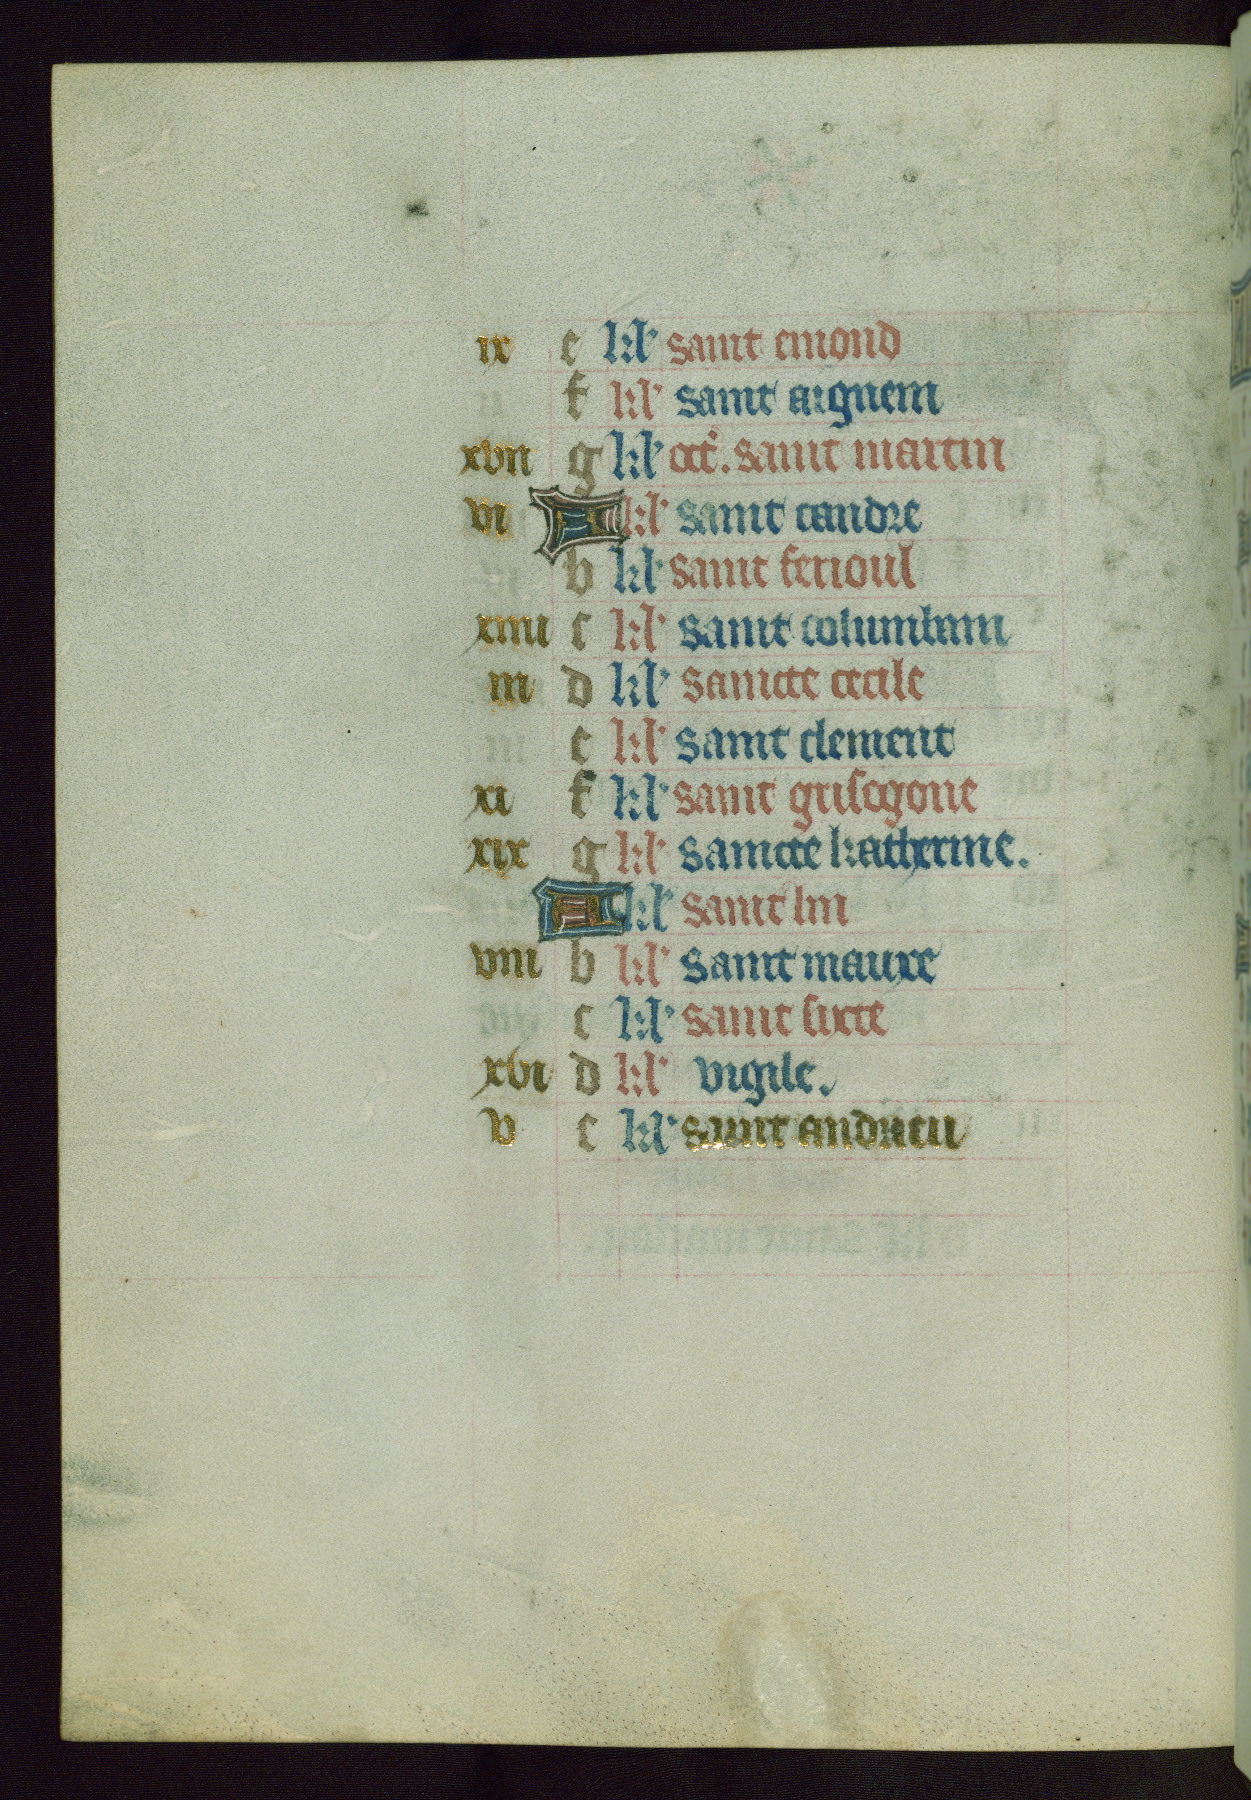 ix e kl' saint emond
f kl' saint aignem
xvii g kl' oct'. saint martin
vi A kl' saint candre
b kl' saint ferioul
xiiii c kl' saint columbam
iii d kl' saincte cecile
e kl' saint clement
xi f kl' saint grisogone
xix g kl' saincte katherine.
A kl' saint lin
viii b kl' saint mauxe
c kl' saint sixte
xvi d kl' vigile.
v e kl' saint andrieu